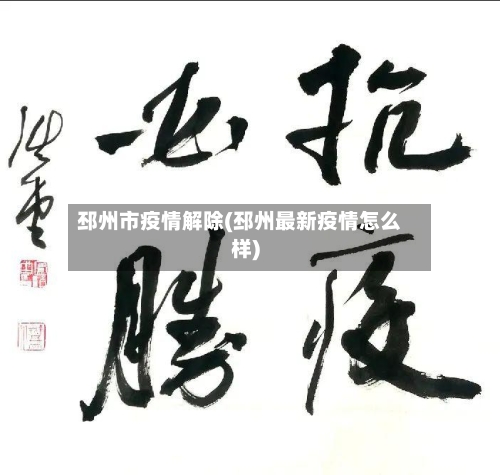 抗疫
必勝
邳州市疫情解除(邳州最新疫情怎么
样)